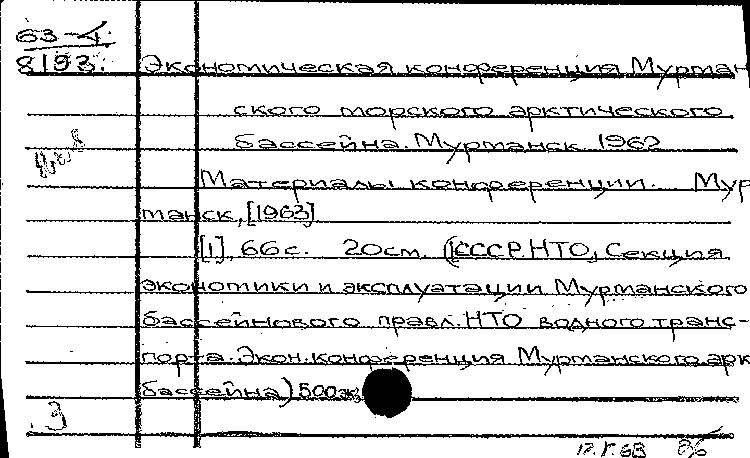 63-4
8193.
Экономическая конференция Мурман
ского морского арктического
бассейна. Мурманск 1962
Материалы конференции. Мур
манск, [1963]
[1], 66 с. 20 см. (СССР. НТО, Секция
экономики и эксплуатации Мурманского
бассейнового правл. НТО водного транс-
порта. Экон. конференция Мурманского арк
бассейна) 500 эк
3
12.V.63